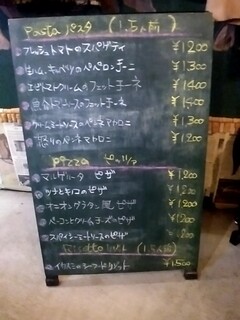 Pasta パスタ (1.5人前)
フレッシュトマトのスパゲティ ¥1200
生ハム、キャベツのペペロンチーニ ¥1300
エビトマトクリームのフェットチーネ ¥1400
魚介 ソースのフェットチーネ ¥1500
クリームミートソースのペンネマカロニ ¥1300
のペンネマカロニ ¥1200
Pizza ピッツァ
マルゲリータ ピザ ¥1200
ツナとキノコのピザ ¥1200
オニオングラタン風ピザ ¥1200
ベーコンとクリームチーズのピザ ¥1200
スパイシーミートソースのピザ ¥1200
Risotto リゾット (1.5人前)
イカスミのシーフードリゾット ¥1500